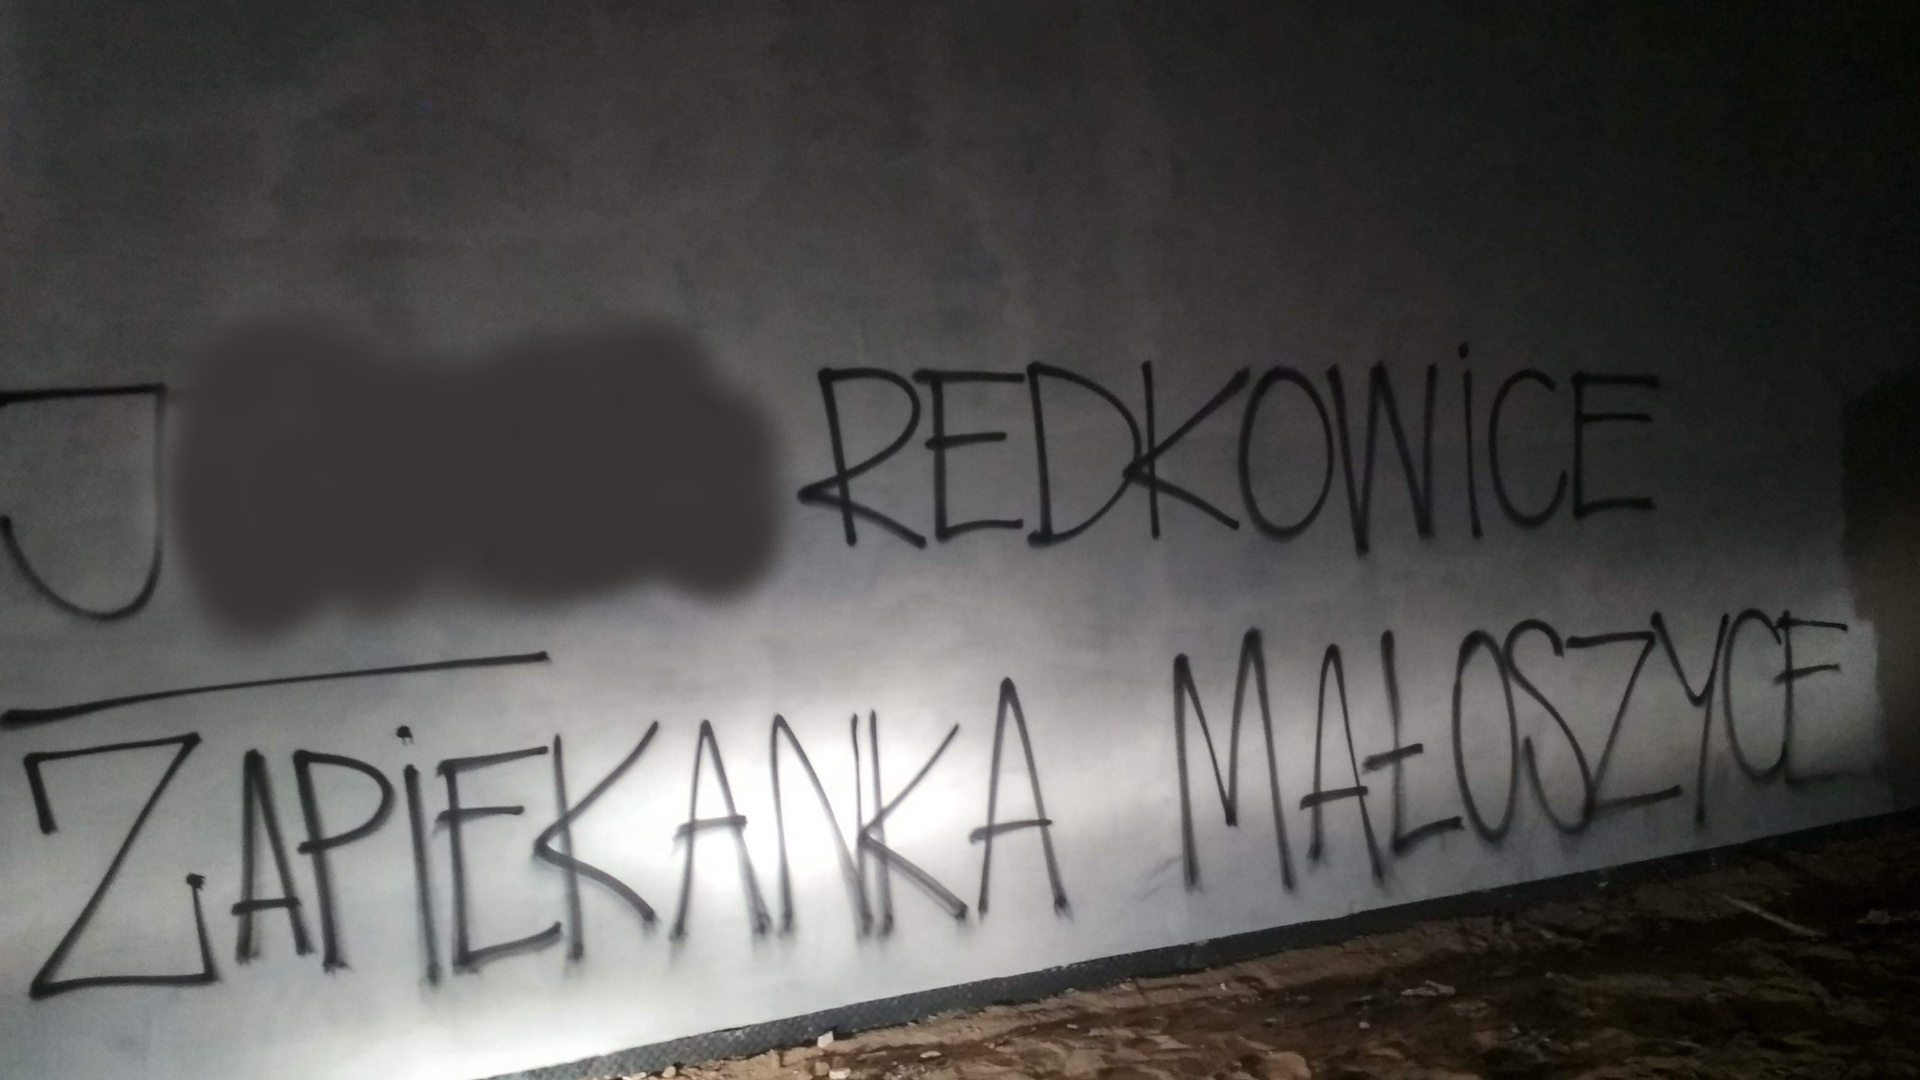 J REDKOWICE
ZAPIEKANKA MAŁOSZYCE